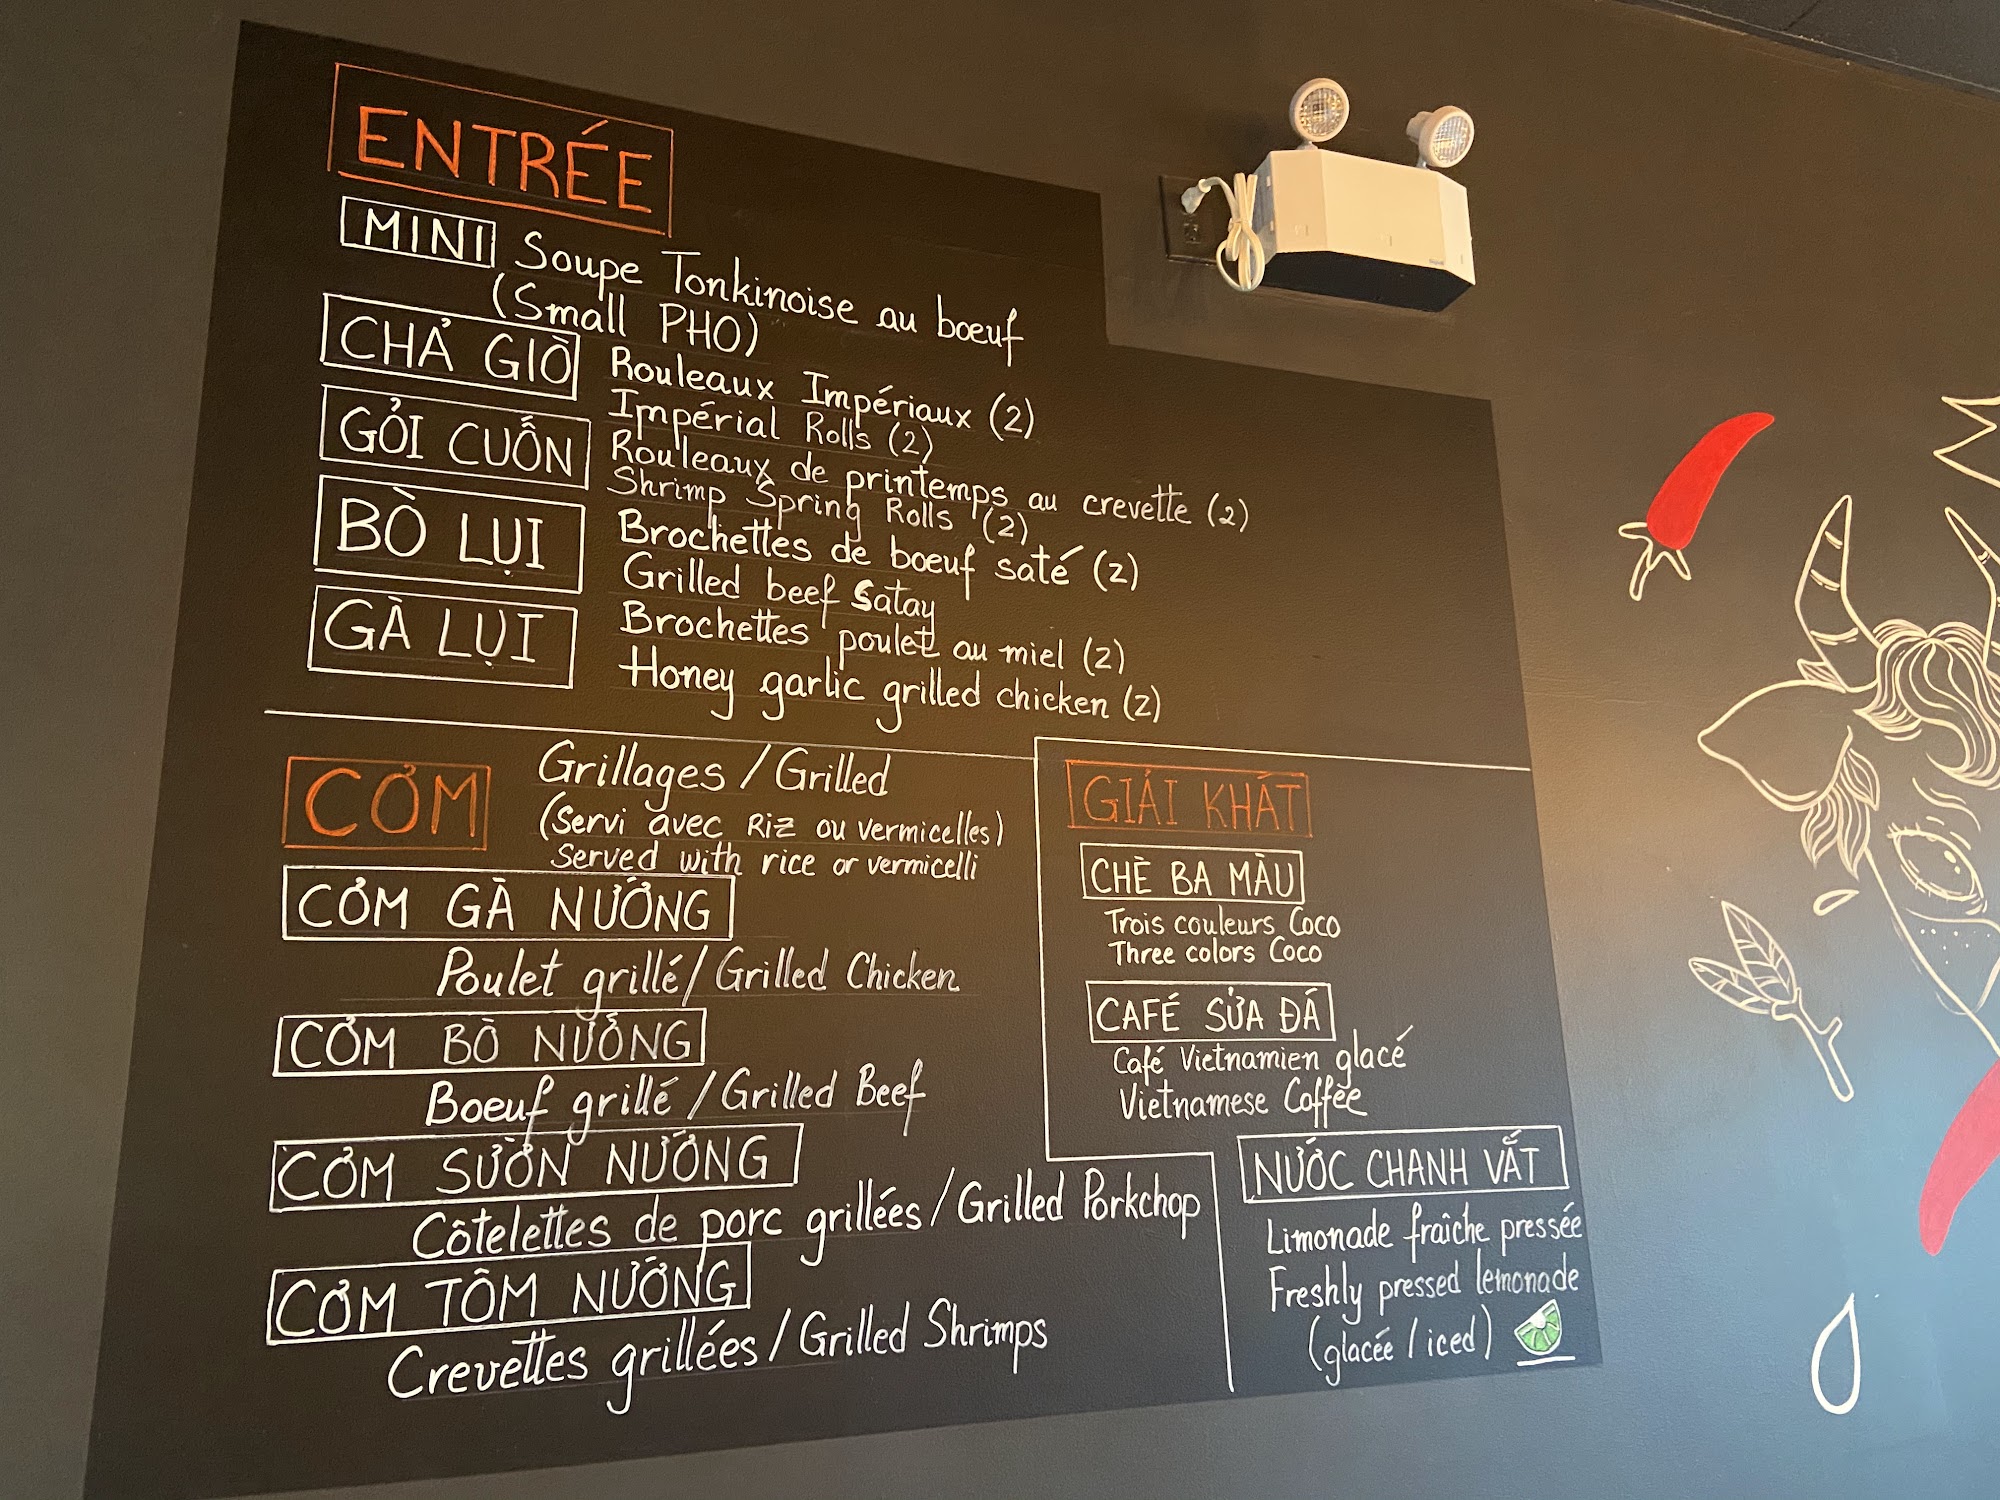 ENTRÉE
MINI Soupe Tonkinoise au boeuf
(Small PHO)
CHẢ GIÒ Rouleaux Impériaux (2)
Impérial Rolls (2)
GỎI CUỐN Rouleaux de printemps au crevette (2)
Shrimp Spring Rolls (2)
BÒ LỤI Brochettes de boeuf saté (2)
Grilled beef satay
GÀ LỤI Brochettes poulet au miel (2)
Honey garlic grilled chicken (2)
CƠM Grillages / Grilled
(Servi avec RIZ ou vermicelles)
Served with rice or vermicelli
CƠM GÀ NƯỚNG
Poulet grillé / Grilled Chicken
CƠM BÒ NƯỚNG
Boeuf grillé / Grilled Beef
CƠM SƯỜN NƯỚNG
Côtelettes de porc grillées / Grilled Porkchop
CƠM TÔM NƯỚNG
Crevettes grillées / Grilled Shrimps
GIẢI KHÁT
CHÈ BA MÀU
Trois couleurs Coco
Three colors Coco
CAFÉ SỬA ĐÁ
Café Vietnamien glacé
Vietnamese Coffee
NƯỚC CHANH VẮT
Limonade fraîche pressée
Freshly pressed lemonade
(glacée / iced)